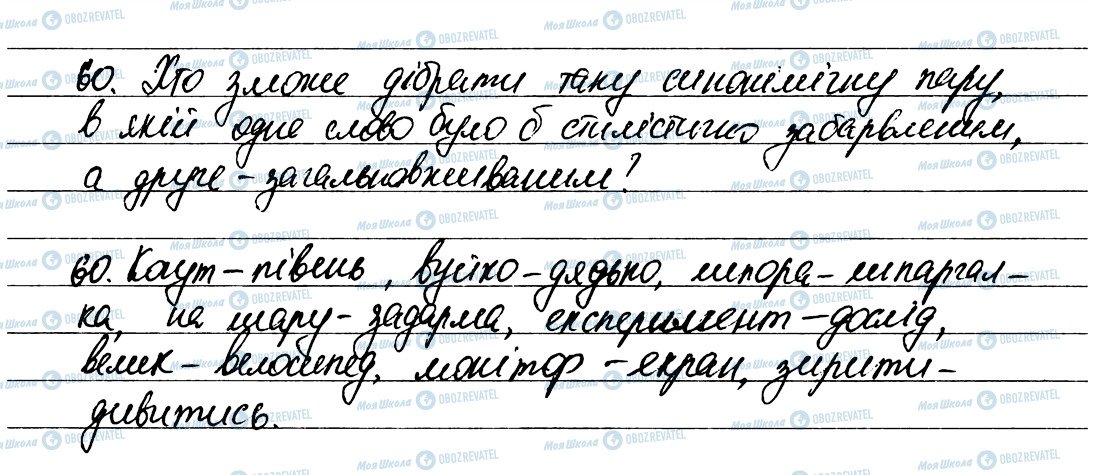 60. Хто зможе дібрати таку синонімічну пару,
в якій одне слово було б стилістично забарвленим,
а друге – загальновживаним?
60. Когут – півень, вуйко – дядько, шпора – шпаргал-
ка, на шару – задарма, експеримент – дослід,
велик – велосипед, монітор – екран, зирити –
дивитись.